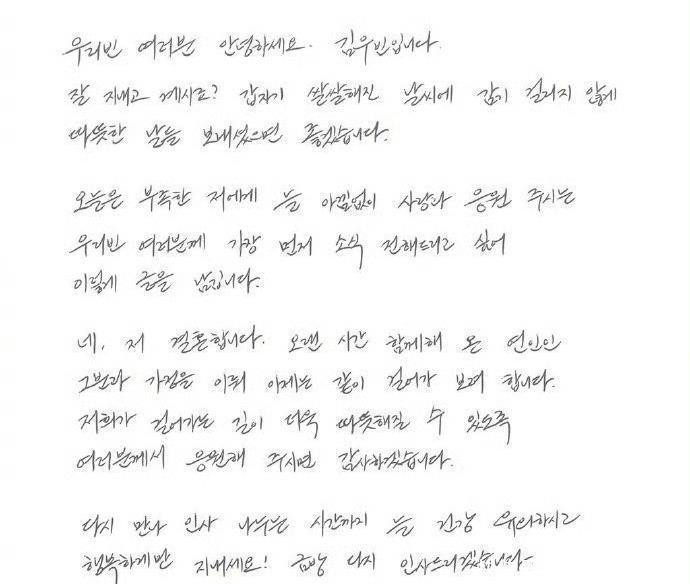 우리빈 여러분 안녕하세요. 김우빈입니다.
잘 지내고 계시죠? 갑자기 쌀쌀해진 날씨에 감기 걸리지 않게
따뜻한 날들 보내셨으면 좋겠습니다.
오늘은 부족한 저에게 늘 아낌없이 사랑과 응원 주시는
우리빈 여러분께 가장 먼저 소식 전해드리고 싶어
이렇게 글을 남깁니다.
네, 저 결혼합니다. 오랜 시간 함께해 온 연인인
그분과 가정을 이뤄 이제는 같이 걸어가 보려 합니다.
저희가 걸어가는 길이 더욱 따뜻해질 수 있도록
여러분께서 응원해 주시면 감사하겠습니다.
다시 만나 인사 나누는 시간까지 늘 건강 유의하시고
행복하게만 지내세요! 금방 다시 인사드리겠습니다~